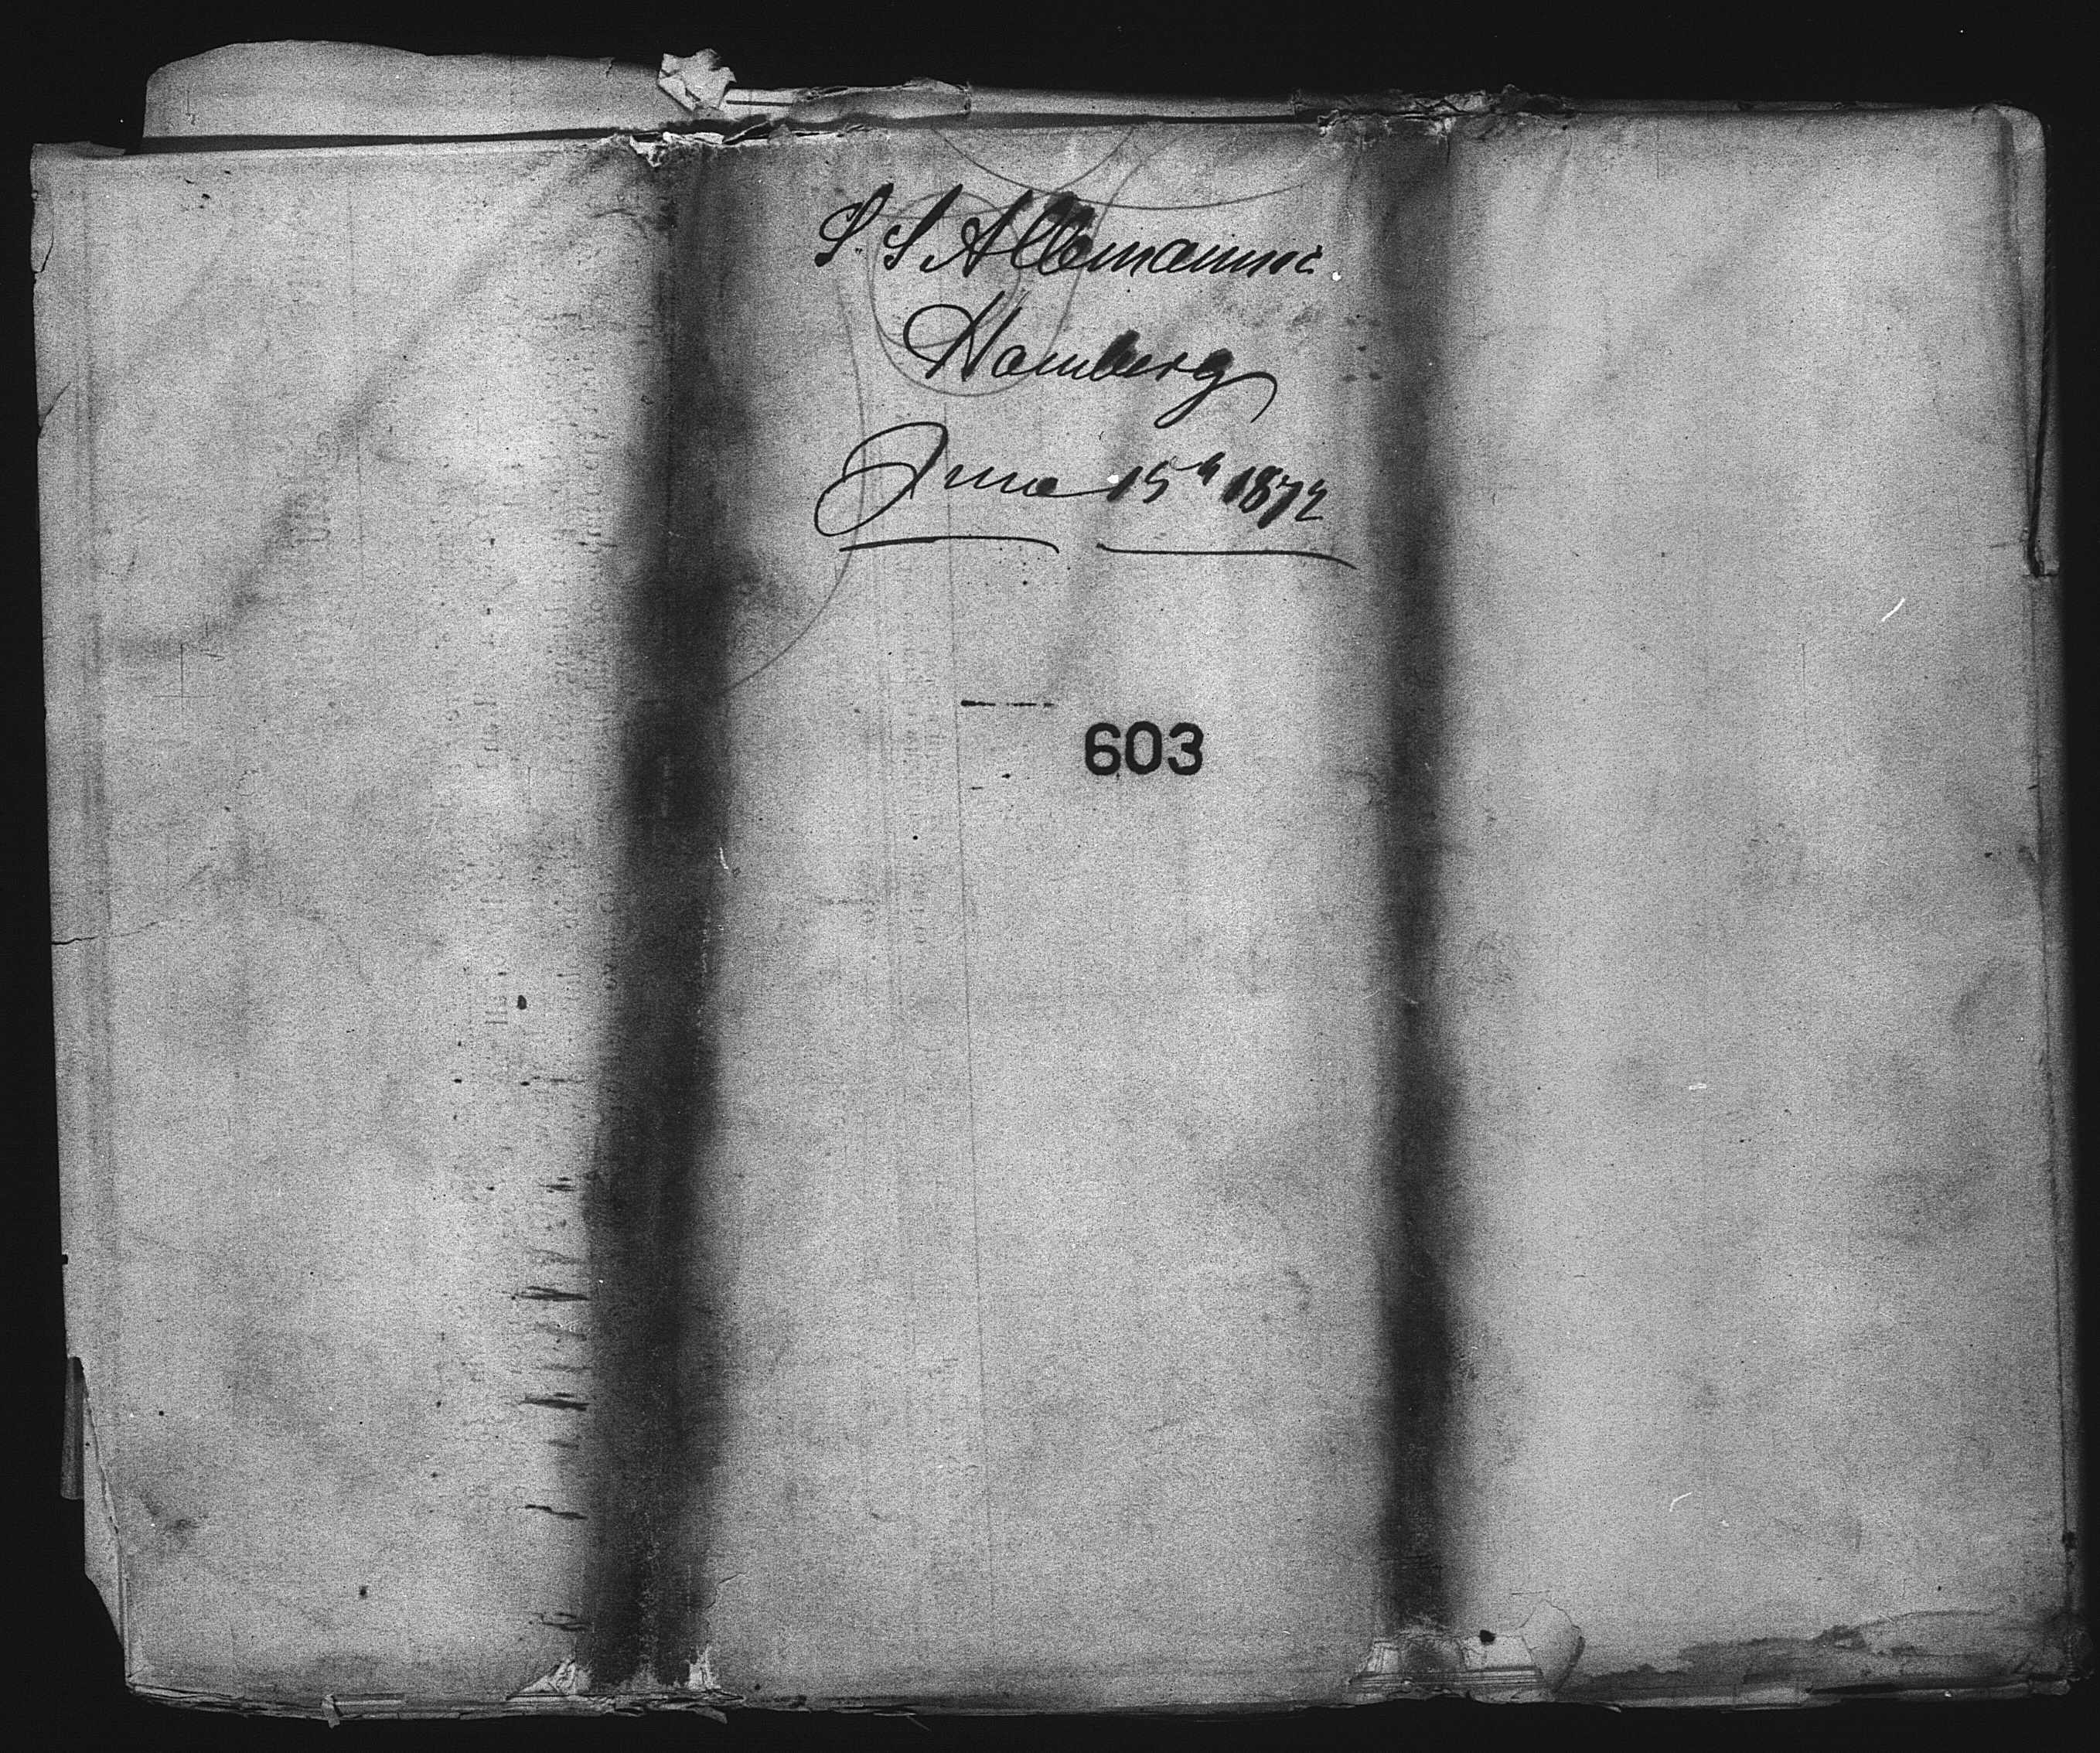 S. S Allemannia
Hamberg
June 15th 1872
603